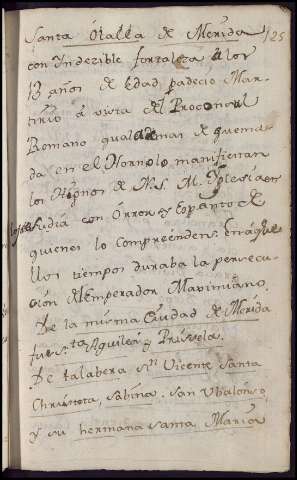 Santa Olalla de Merida 125
con Yndezible fortaleza a los
13 años de edad padecio Mar-
tirio a vista del Proconsul
Romano qual ademas de quema-
da en el Horno lo manifiestan
los Hignos de N.S. M. Yglesia
con Orror y Espanto de
quienes lo comprehenden. En aque-
llos tiempos duraba la persecu-
cion del Emperador Maximiano.
De la misma Ciudad de Merida
fue Sta Aguilea y Priscela.
De talabera Sn Vicente, Santa
Christeta, Sabina. San Ubalonso
y su hermana Santa Maria